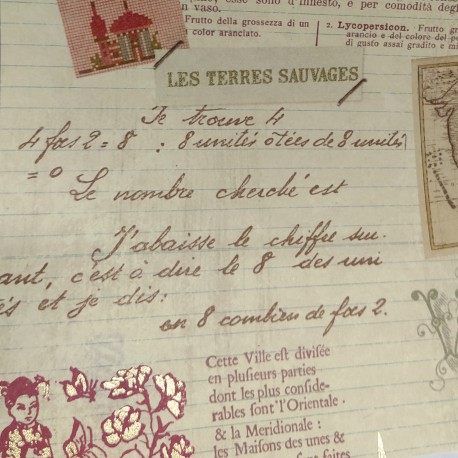 , esse sono d'innesto, e per comodità degl
n vaso.
Frutto della grossezza di un
color aranciato.
2. Lycopersicon. Frutto
arancio e del colore del
di gusto assai gradito e
LES TERRES SAUVAGES
Je trouve 4
4 fois 2 = 8 : 8 unités ôtées de 8 unités
= 0
Le nombre cherché est
J'abaisse le chiffre sui
ant, c'est à dire le 8 des uni
és et je dis:
en 8 combien de fois 2.
Cette Ville est divisée
en plusieurs parties
dont les plus conside-
rables sont l'Orientale.
& la Meridionale :
les Maisons des unes &
faites